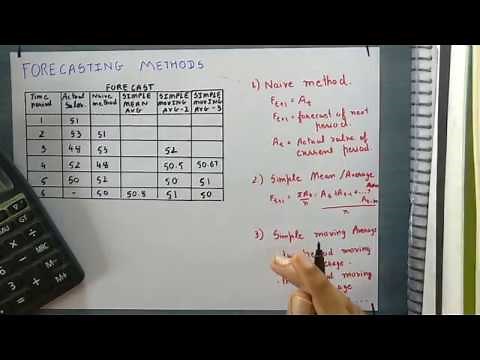 FORECASTING METHODS
FORECAST
Time period Actual Sales Naive method SIMPLE MEAN AVG SIMPLE MOVING AVG-2 SIMPLE MOVING AVG-3
1 51
2 53 51
3 48 53 52
4 52 48 50.5 50.67
5 50 52 50 51
6 - 50 50.8 51 50
1) Naive method.
Ft+1 = At
Ft+1 = forecast of next
period
At = Actual value of
current period
2) Simple Mean/Average
Ft+1 = ΣAt/n = At + At-1 + ...
n
3) Simple moving Average
moving
moving